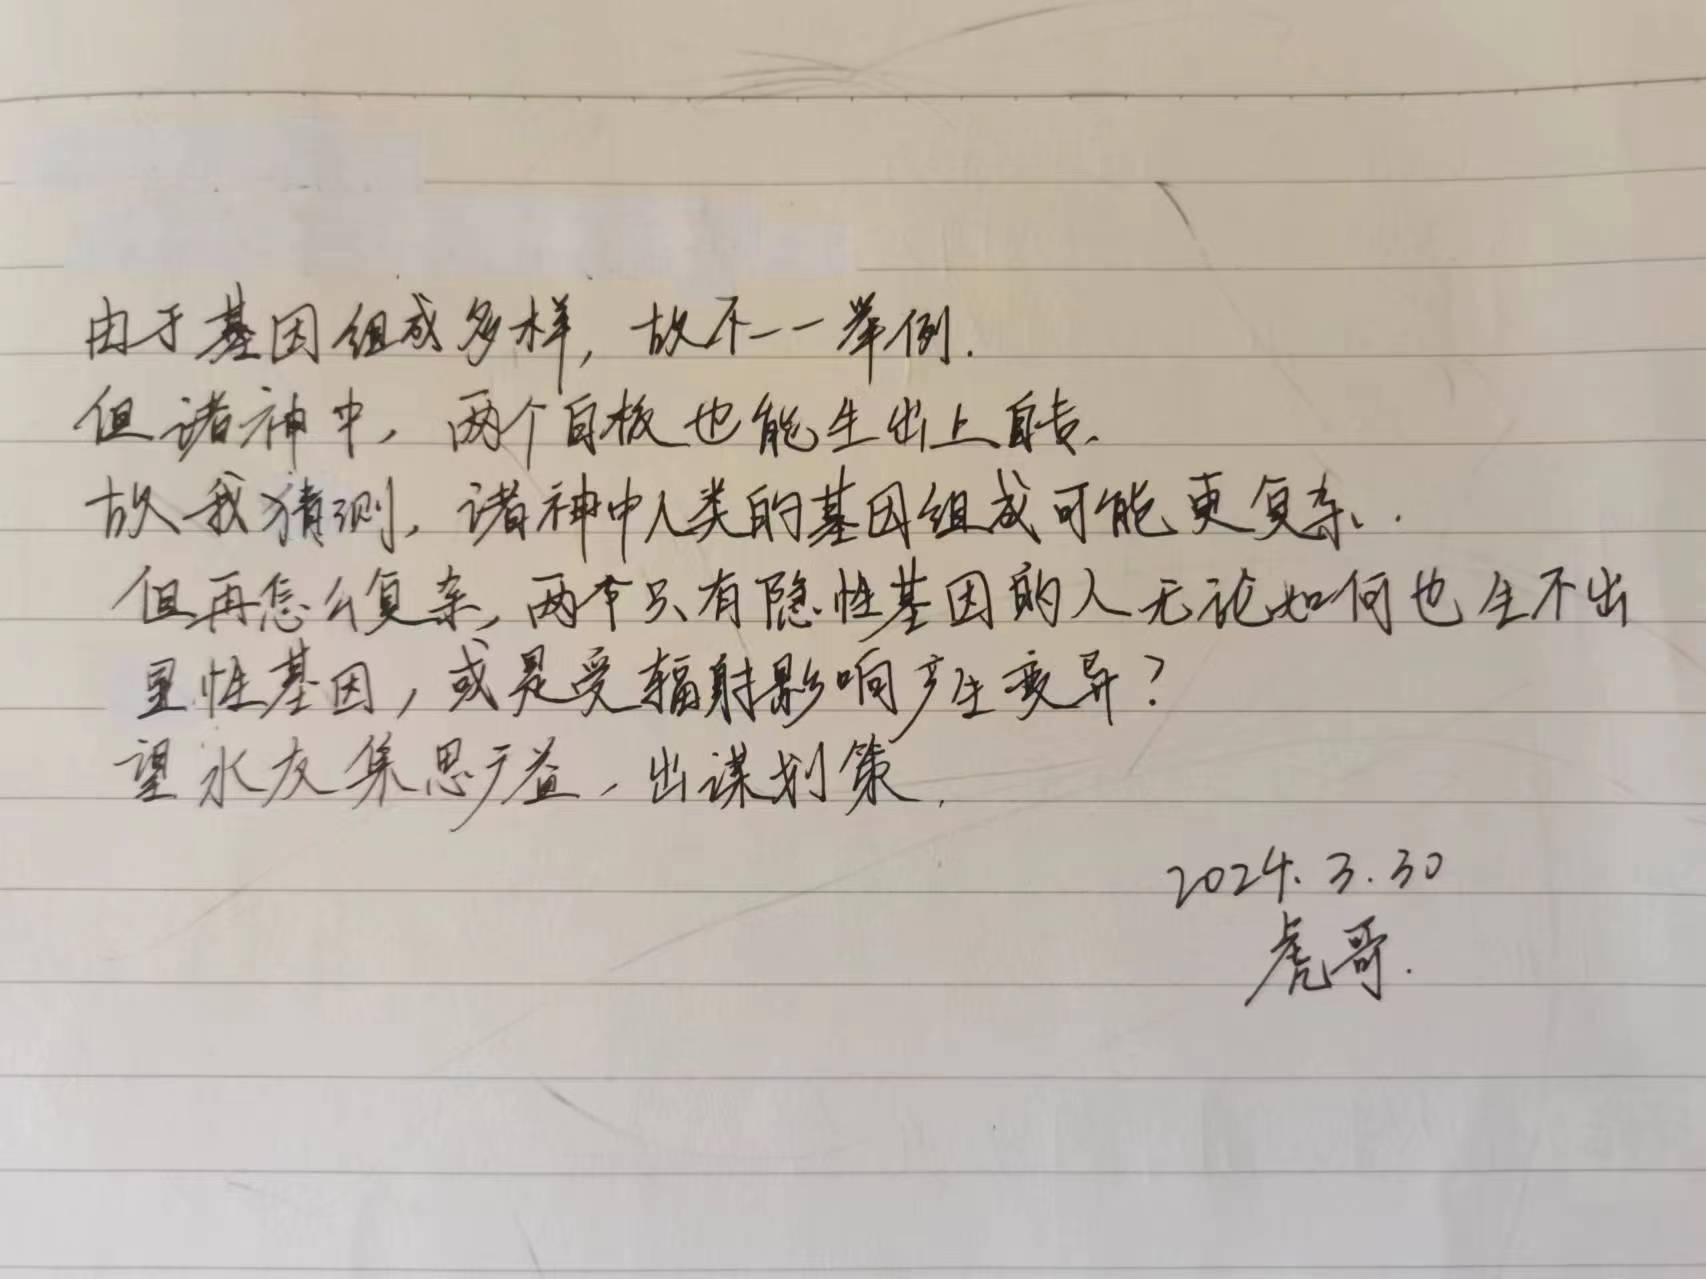 由于基因组成多样，故不一一举例.
但诸神中，两个白板也能生出上自去、
故我猜测，诸神中人类的基因组成可能更复杂..
但再怎么复杂，两个只有隐性基因的人无论如何也生不出
显性基因，或是受辐射影响产生变异？
望水友集思广益，出谋划策.
2024.3.30
虎哥.